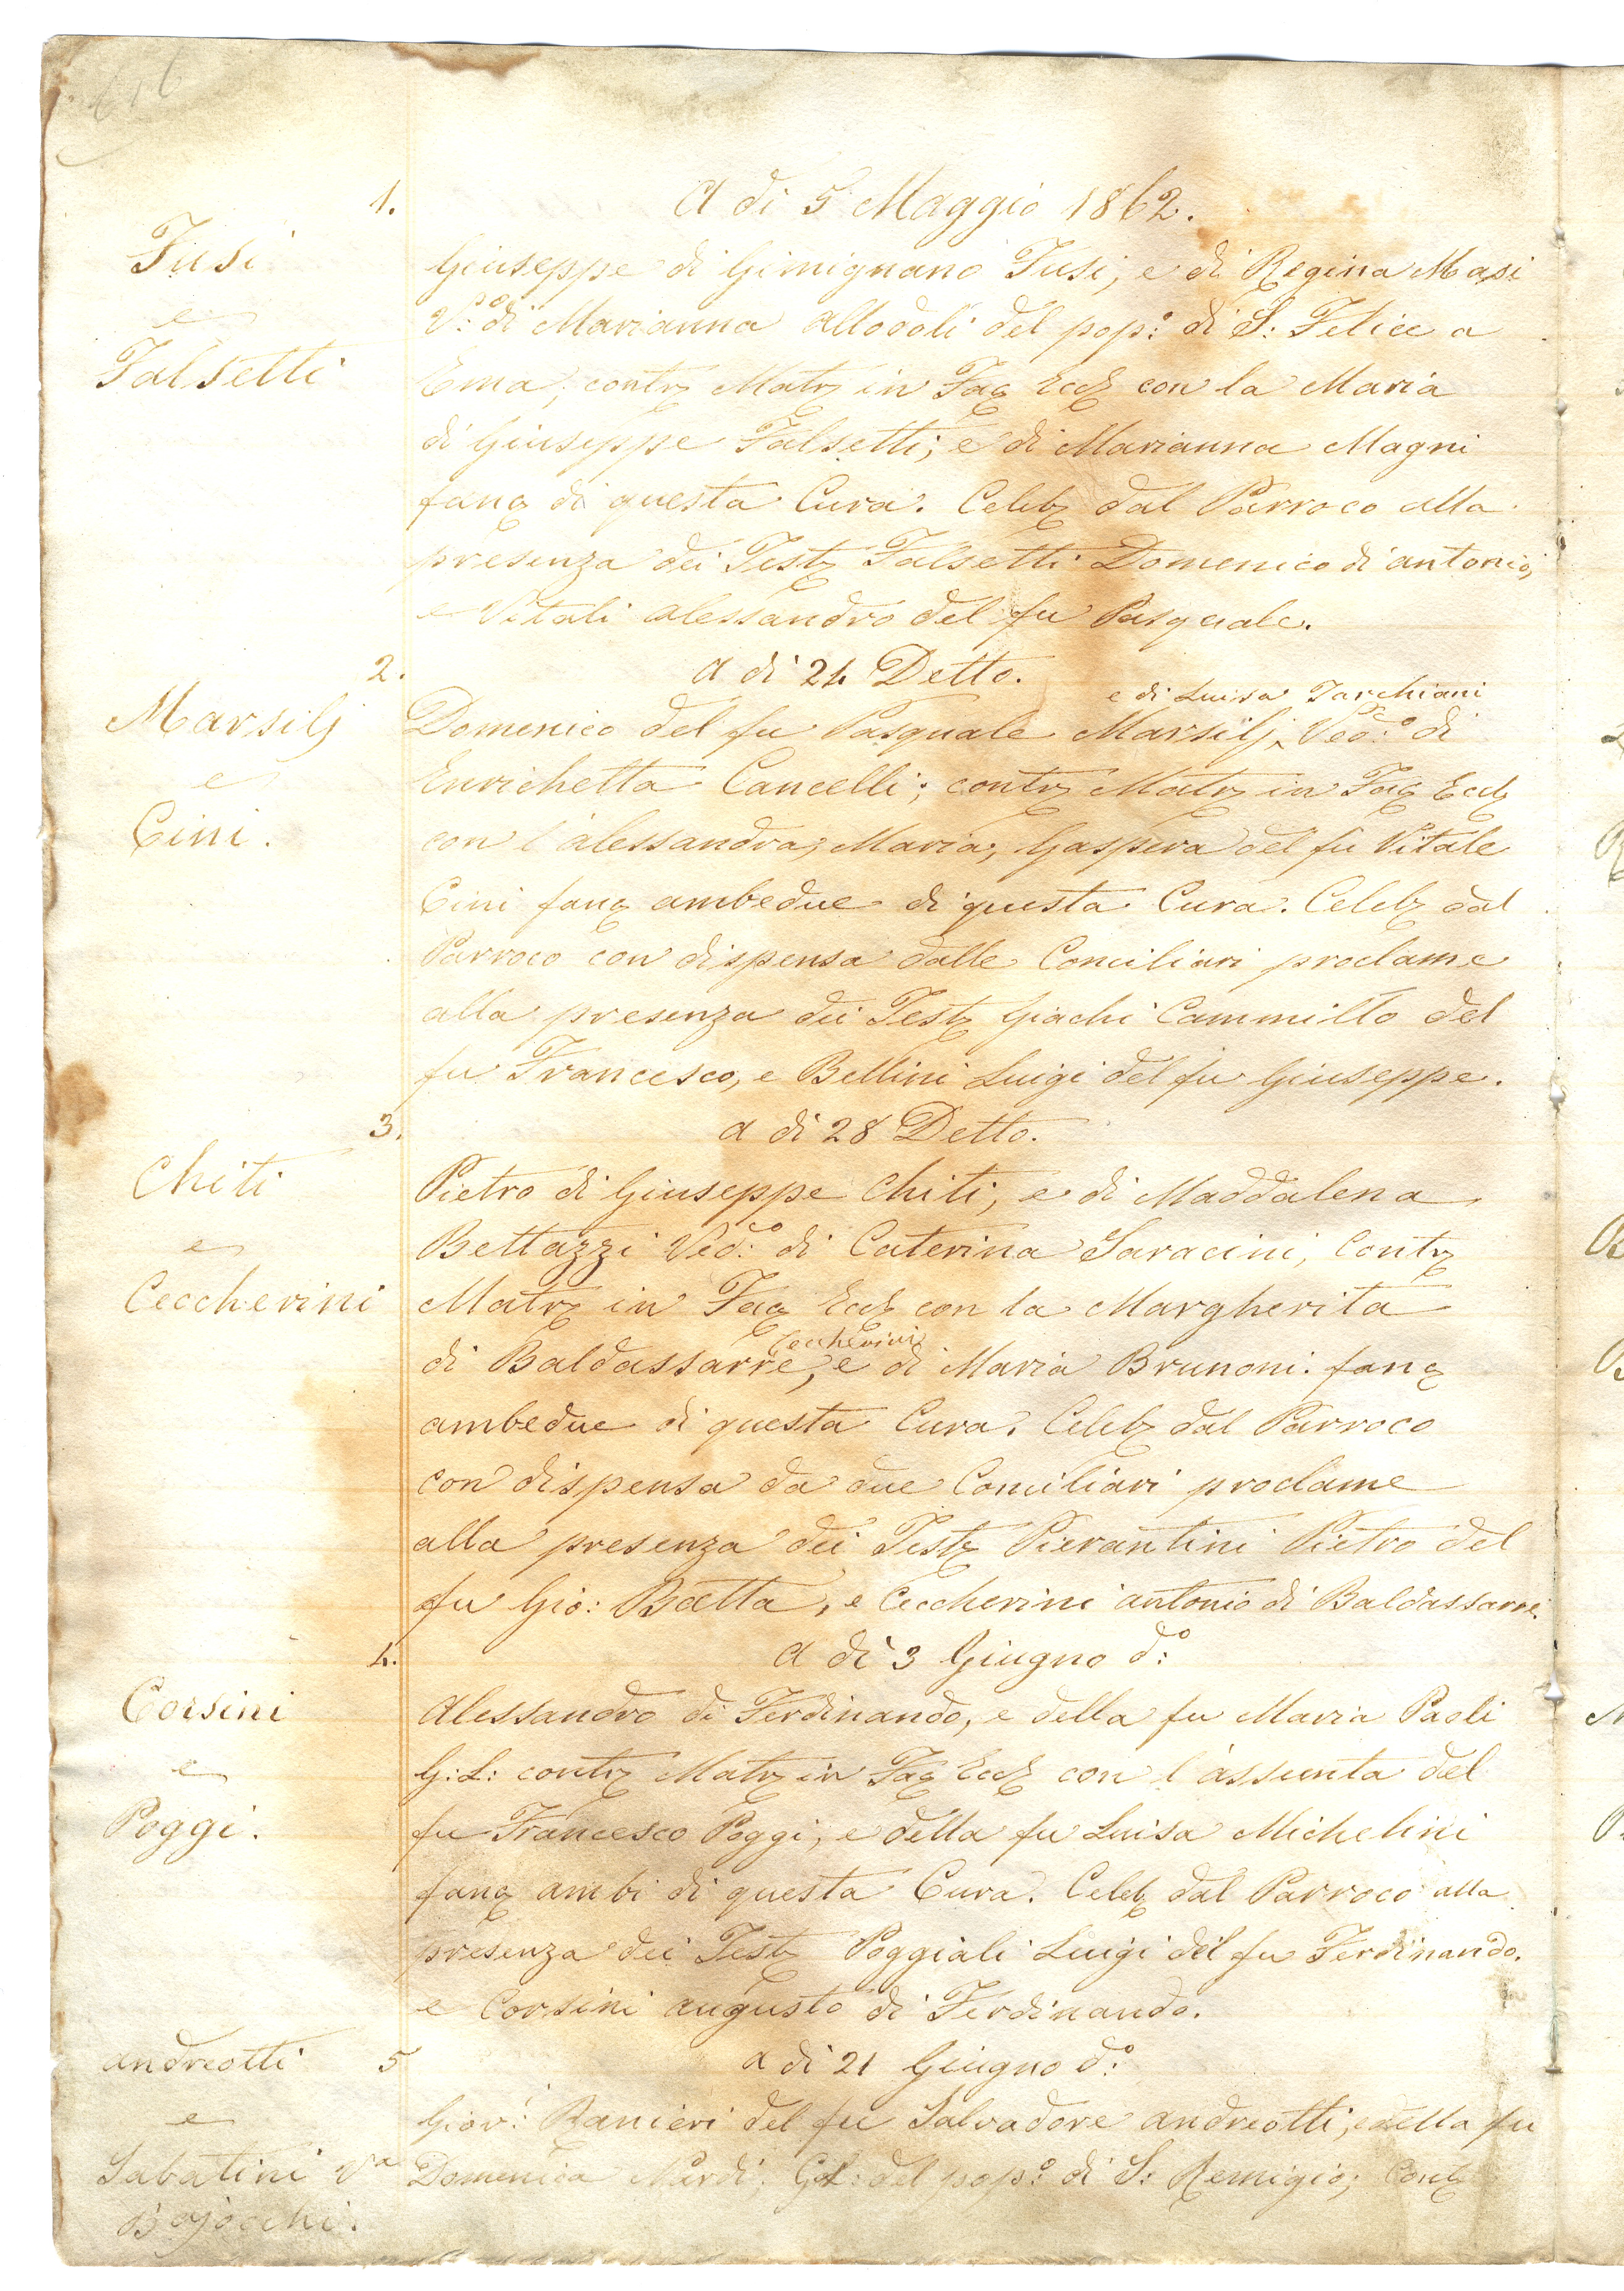 616
1.
A di 5 Maggio 1862.
Fusi
e
Falsetti
Giuseppe di Gimignano Fusi, e di Regina Masi
V:º di Marianna Allodoli del pop:º di S: Felice a
Ema; contr Matr in Fac Eccl con la Maria
di Giuseppe Falsetti; e di Marianna Magni
fanc di questa Cura. Celeb dal Parroco alla
presenza dei Test Falsetti Domenico di Antonio,
e Vitali Alessandro del fu Pasquale.
2.
A di 24 Detto.
Marsilj
e
Cini.
e di Luisa Tarchiani
Domenico del fu Pasquale Marsilj, Ved:º di
Enrichetta Cancelli; contr Matr in Fac Eccl
con l'Alessandra, Maria, Gaspera del fu Vitale
Cini fanc ambedue di questa Cura. Celeb dal
Parroco con dispensa dalle Conciliari proclame
alla presenza dei Test Giachi Cammillo del
fu Francesco, e Bellini Luigi del fu Giuseppe.
3.
A di 28 Detto.
Chiti
e
Ceccherini
Pietro di Giuseppe Chiti, e di Maddalena
Bettazzi Ved:º di Caterina Saracini, Contr
Matr in Fac Eccl con la Margherita
Ceccherini
di Baldassarre, e di Maria Brunoni. fanc
ambedue di questa Cura. Celeb dal Parroco
con dispensa da due Conciliari proclame
alla presenza dei Test Pierantini Pietro del
fu Gio: Batta, e Ceccherini Antonio di Baldassarre.
4.
A di 3 Giugno d:º
Corsini
e
Poggi.
Alessandro di Ferdinando, e della fu Maria Paoli
G:L: contr Matr in Fac Eccl con l'Assunta del
fu Francesco Poggi, e della fu Luisa Michelini
fanc ambi di questa Cura. Celeb dal Parroco alla
presenza dei Test Poggiali Luigi del fu Ferdinando.
e Corsini Augusto di Ferdinando.
5
A di 21 Giugno d:º
Andreotti
e
Sabatini Vª
Bajocchi.
Giov: Ranieri del fu Salvadore Andreotti, e della fu
Domenica Nardi. G.L: del pop:º di S: Remigio; Cont